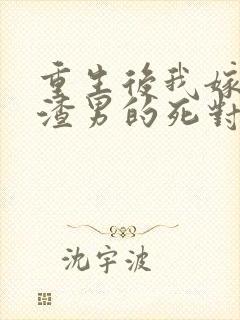 重生後我嫁
渣男的死對
沈宇波